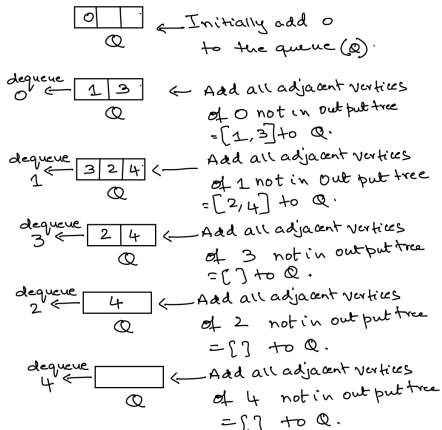 0
Q
Initially add 0
to the queue (Q).
dequeue
0
1 3
Q
Add all adjacent vertices
of 0 not in output tree
=[1,3] to Q.
dequeue
1
3 2 4
Q
Add all adjacent vertices
of 1 not in Output tree
=[2,4] to Q.
dequeue
3
2 4
Q
Add all adjacent vertices
of 3 not in output tree
=[] to Q.
dequeue
2
4
Q
Add all adjacent vertices
of 2 not in output tree
=[] to Q.
dequeue
4
Q
Add all adjacent vertices
of 4 not in output tree
=[] to Q.